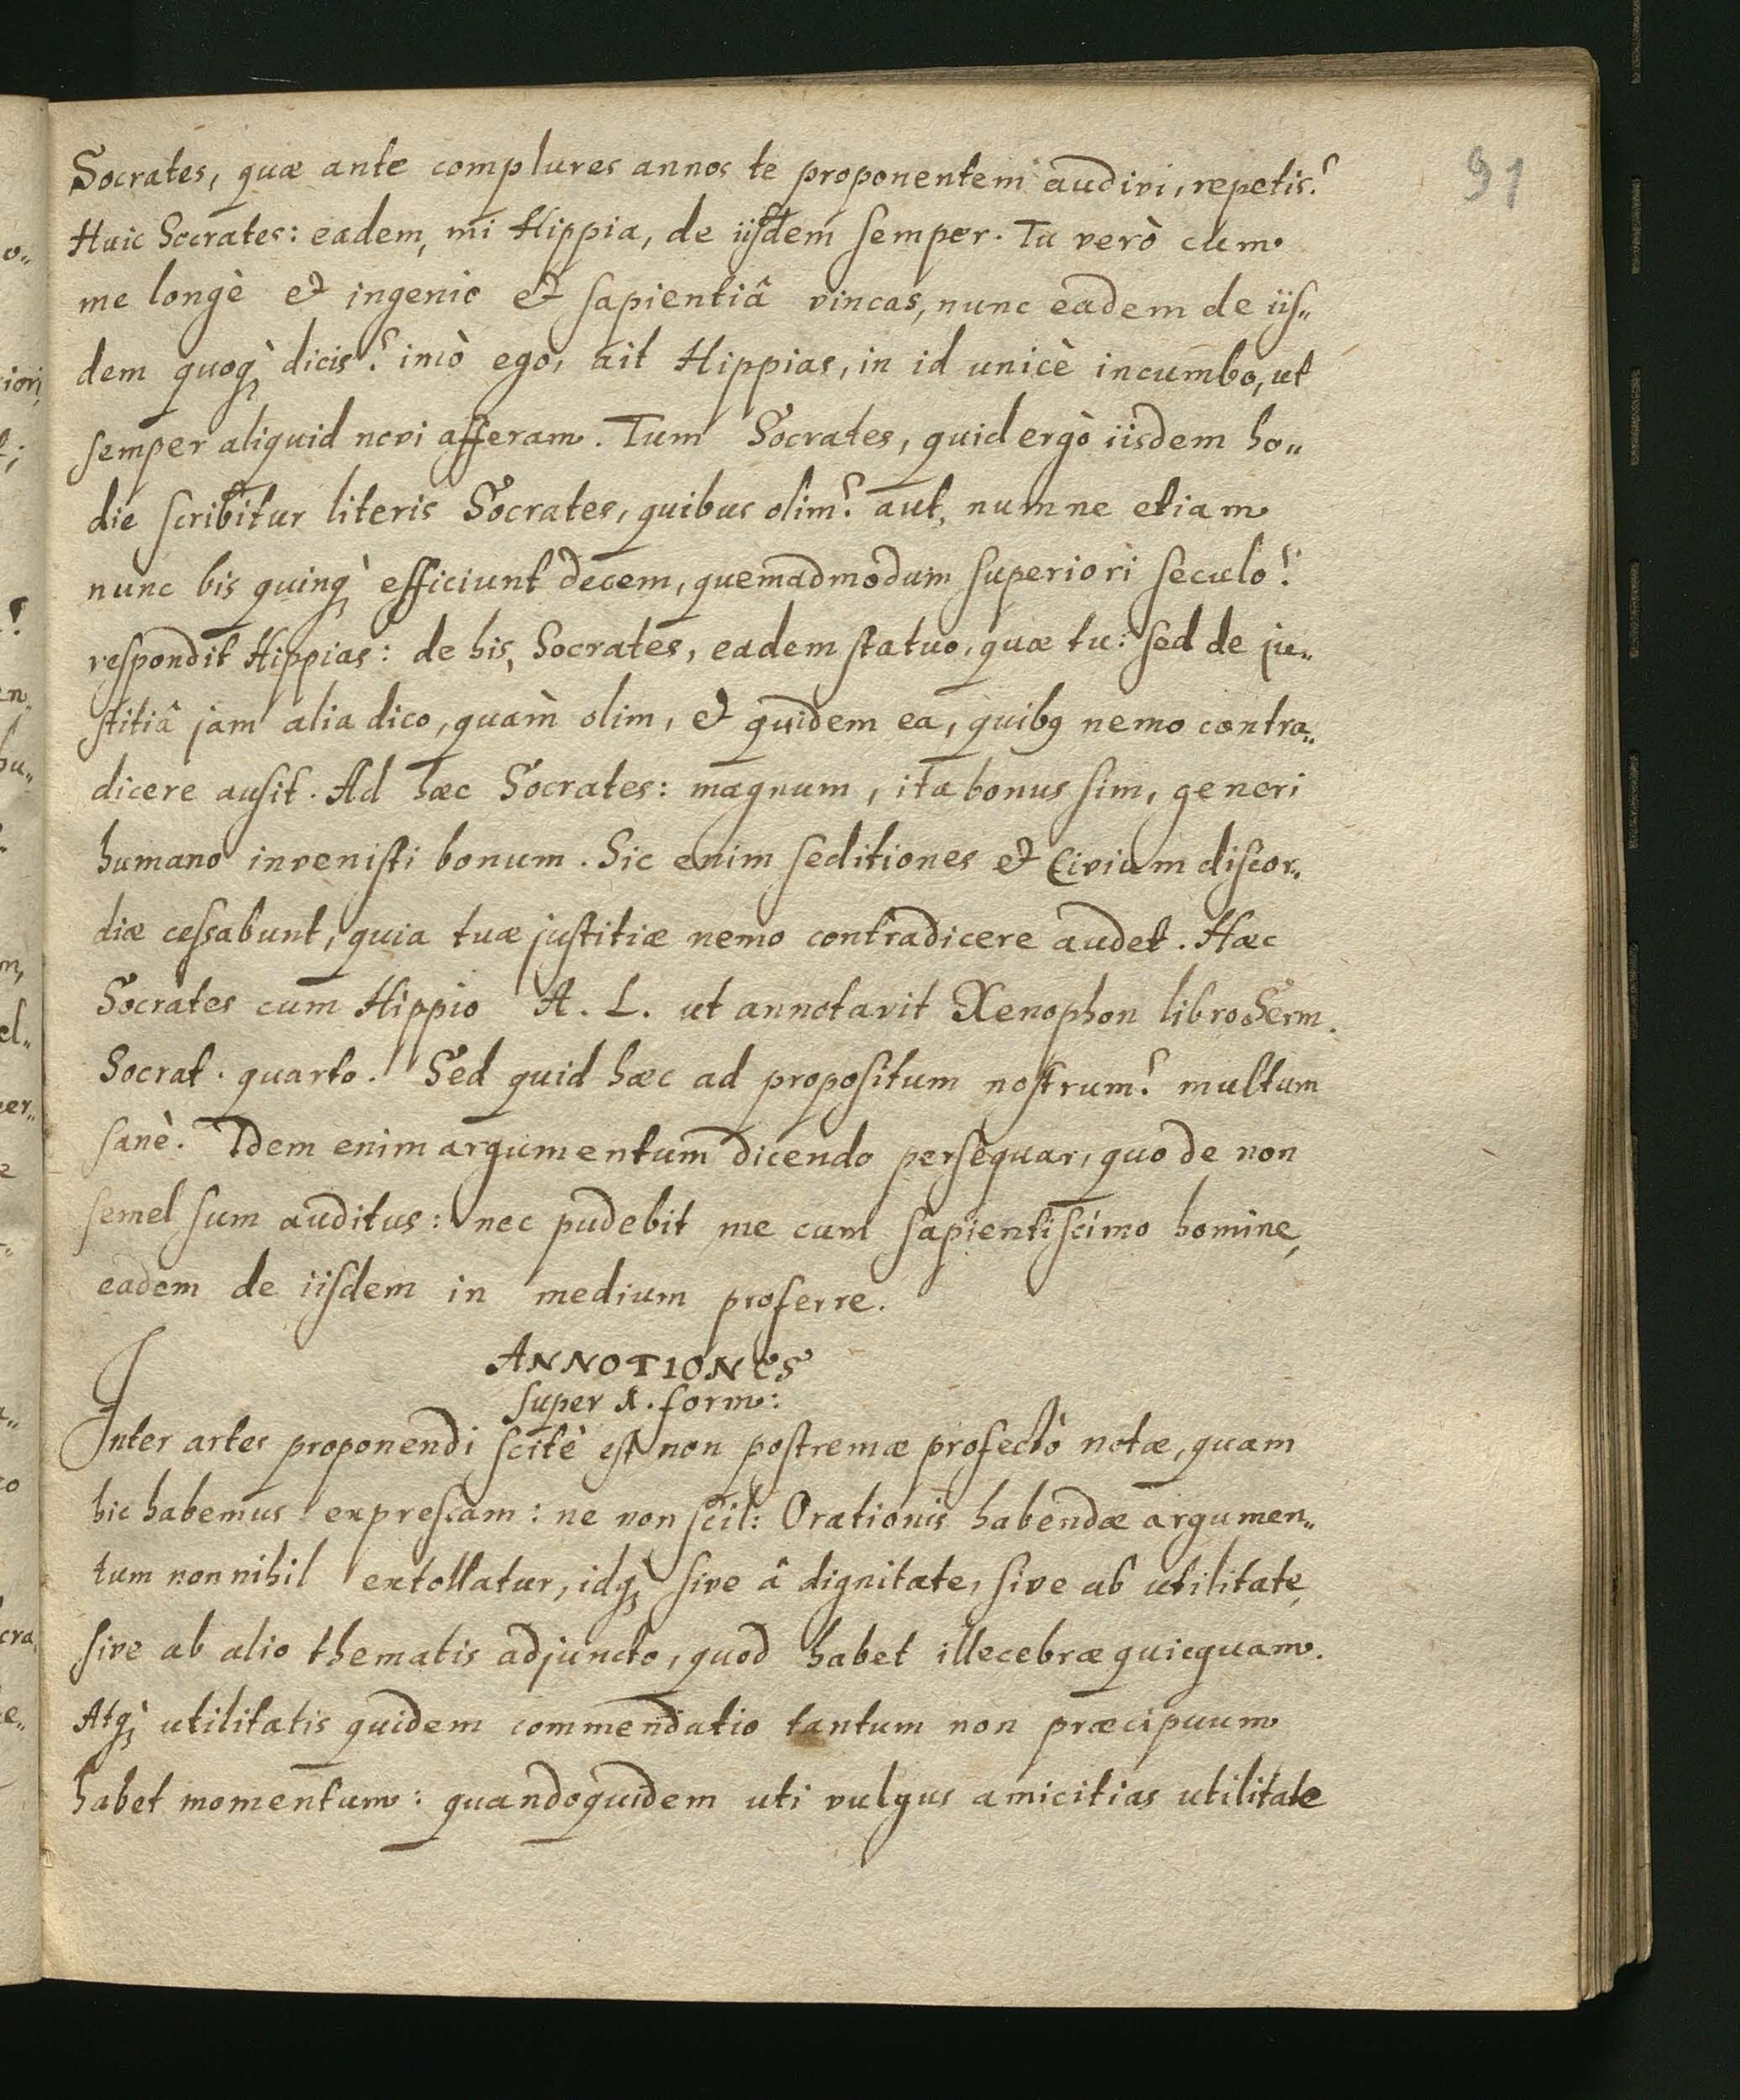 91
Socrates, quæ ante complures annos te proponentem audivi, repetis?
Huic Socrates: eadem, mi Hippia, de iisdem semper. Tu verò cum
me longè et ingenio et sapientiâ vincas, nunc eadem de iis„
dem quoq̀ dicis? imò ego, ait Hippias, in id unicè incumbo, ut
semper aliquid novi afferam. Tum Socrates, quid ergò iisdem ho„
die scribitur literis Socrates, quibus olim? aut, numne etiam
nunc bis quinq̀ efficiunt decem, quemadmodum superiori seculo?
respondit Hippias: de his, Socrates, eadem statuo, quæ tu: sed de ju„
stitiâ jam alia dico, quàm olim, et quidem ea, quibꝯ nemo contra„
dicere ausit. Ad hæc Socrates: magnum, ita bonus sim, generi
humano invenisti bonum. Sic enim seditiones et Civium discor„
diæ cessabunt, quia tuæ justitiæ nemo contradicere audet. Hæc
Socrates cum Hippio A. L. ut annotavit Xenophon libro Serm.
Socrat. quarto. Sed quid hæc ad propositum nostrum? multum
sanè. Idem enim argumentum dicendo persequar, quo de non
semel sum auditus: nec pudebit me cum sapientissimo homine,
eadem de iisdem in medium proferre.
ANNOTIONES
super X. form:
Inter artes proponendi scitè est non postremæ profectò notæ, quam
hic habemus expressam: ne non scil: Orationis habendæ argumen„
tum nonnihil extollatur, idq̀ sive â dignitate, sive ab utilitate,
sive ab alio thematis adjuncto, quod habet illecebræ quicquam.
Atq̀ utilitatis quidem commendatio tantum non præcipuum
habet momentum: quandoquidem uti vulgus amicitias utilitate